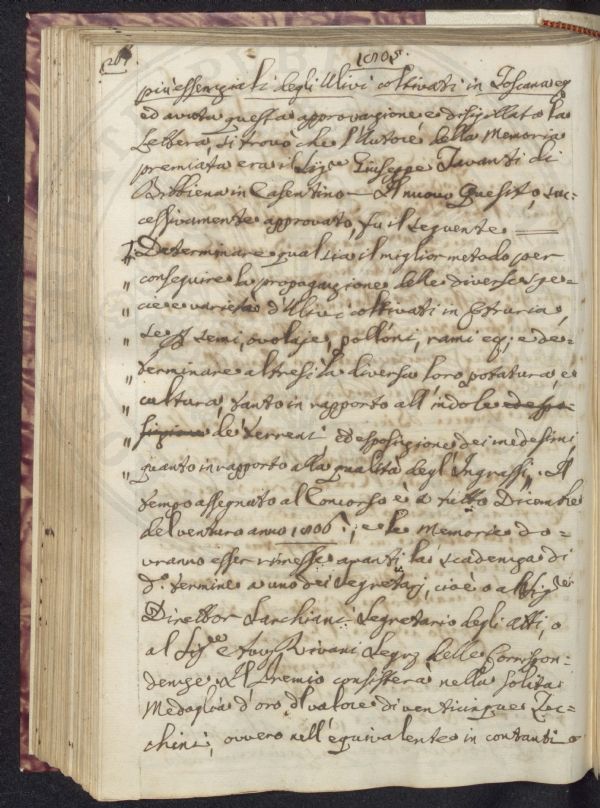 1805.
più essenziali degli Ulivi coltivati in Toscana
ed avuta questa approvazione e disigillata la
Lettera, si trovò che l'Autore della Memoria
premiata era il Sig.re Giuseppe Tavanti di
Bibbiena in Casentino — Il nuovo Quesito, suc=
cessivamente approvato, fu il seguente =
" Determinare qual sia il miglior metodo per
" conseguire la propagazione delle diverse spe=
" cie e varietà d'Ulivi coltivati in Etruria,
" se p semi, ovolaje, polloni, rami eq; e de=
" terminare altresì la diversa loro potatura, e
" cultura, tanto in rapporto all'indole ed espo=
" sizione de' terreni ed esposizione dei medesimi
" quanto in rapporto alla qualità degl'Ingrassi". Il
tempo assegnato al Concorso è a tutto Dicembre
del venturo anno 1806; e le Memorie do=
vranno esser rimesse avanti la scadenza di
d.o termine a uno dei Segretarj, cioè o al Sig.re
Direttor Sarchiani Segretario degli Atti, o
al Sig.re Avv. Rivani Segrio delle Corrispon=
denze. Il Premio consisterà nella solita
Medaglia d'oro del valore di venticinque Zec=
chini, ovvero nell'equivalente in contanti